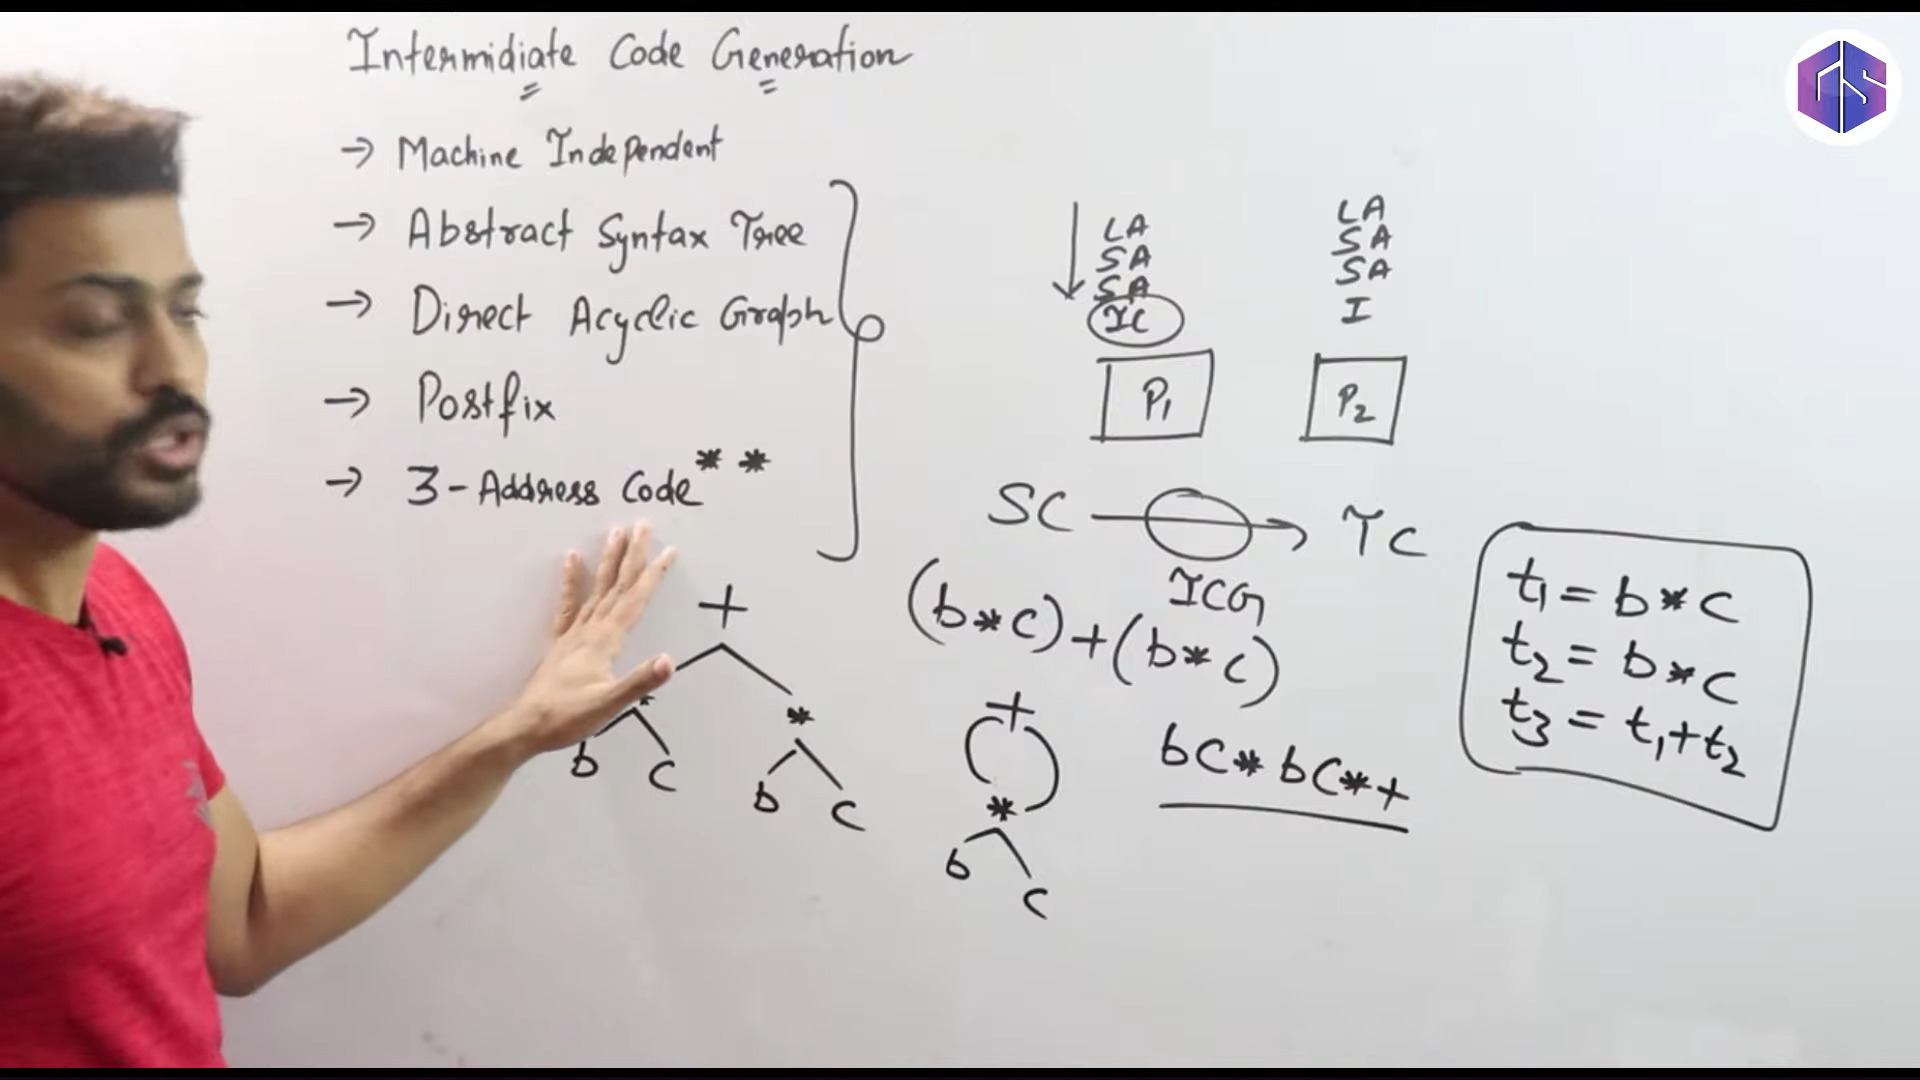 Intermidiate Code Generation
→ Machine Independent
→ Abstract Syntax Tree
→ Direct Acyclic Graph
→ Postfix
→ 3-Address Code**
LA
SA
SA
IC
P1
LA
SA
SA
I
P2
SC → TC
ICG
(b*c)+(b*c)
+
*
*
b c
b c
+
*
b
c
bc*bc*+
t1 = b*c
t2 = b*c
t3 = t1+t2
GS